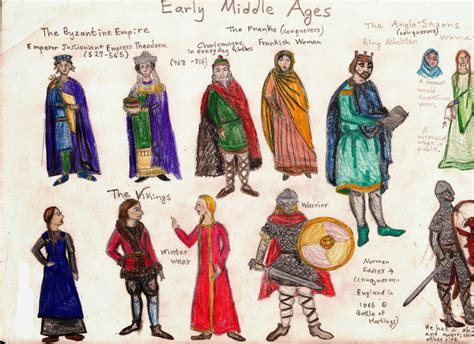 Early Middle Ages
The Byzantine Empire
Emperor Justinian I
Empress Theodora
(527-565)
The Franks (conquerers)
Charlemagne
in everyday clothes
(768-814)
Frankish Woman
The Anglo-Saxons
(conquerers)
King Athelstan
Woman
A woman
would
sometimes
wear
A
wear in
public.
The Vikings
Winter
wear
Warrior
Norman
Soldier →
(conquerer-
England in
1066 @
Battle of
Hastings)
He has a
and
other side